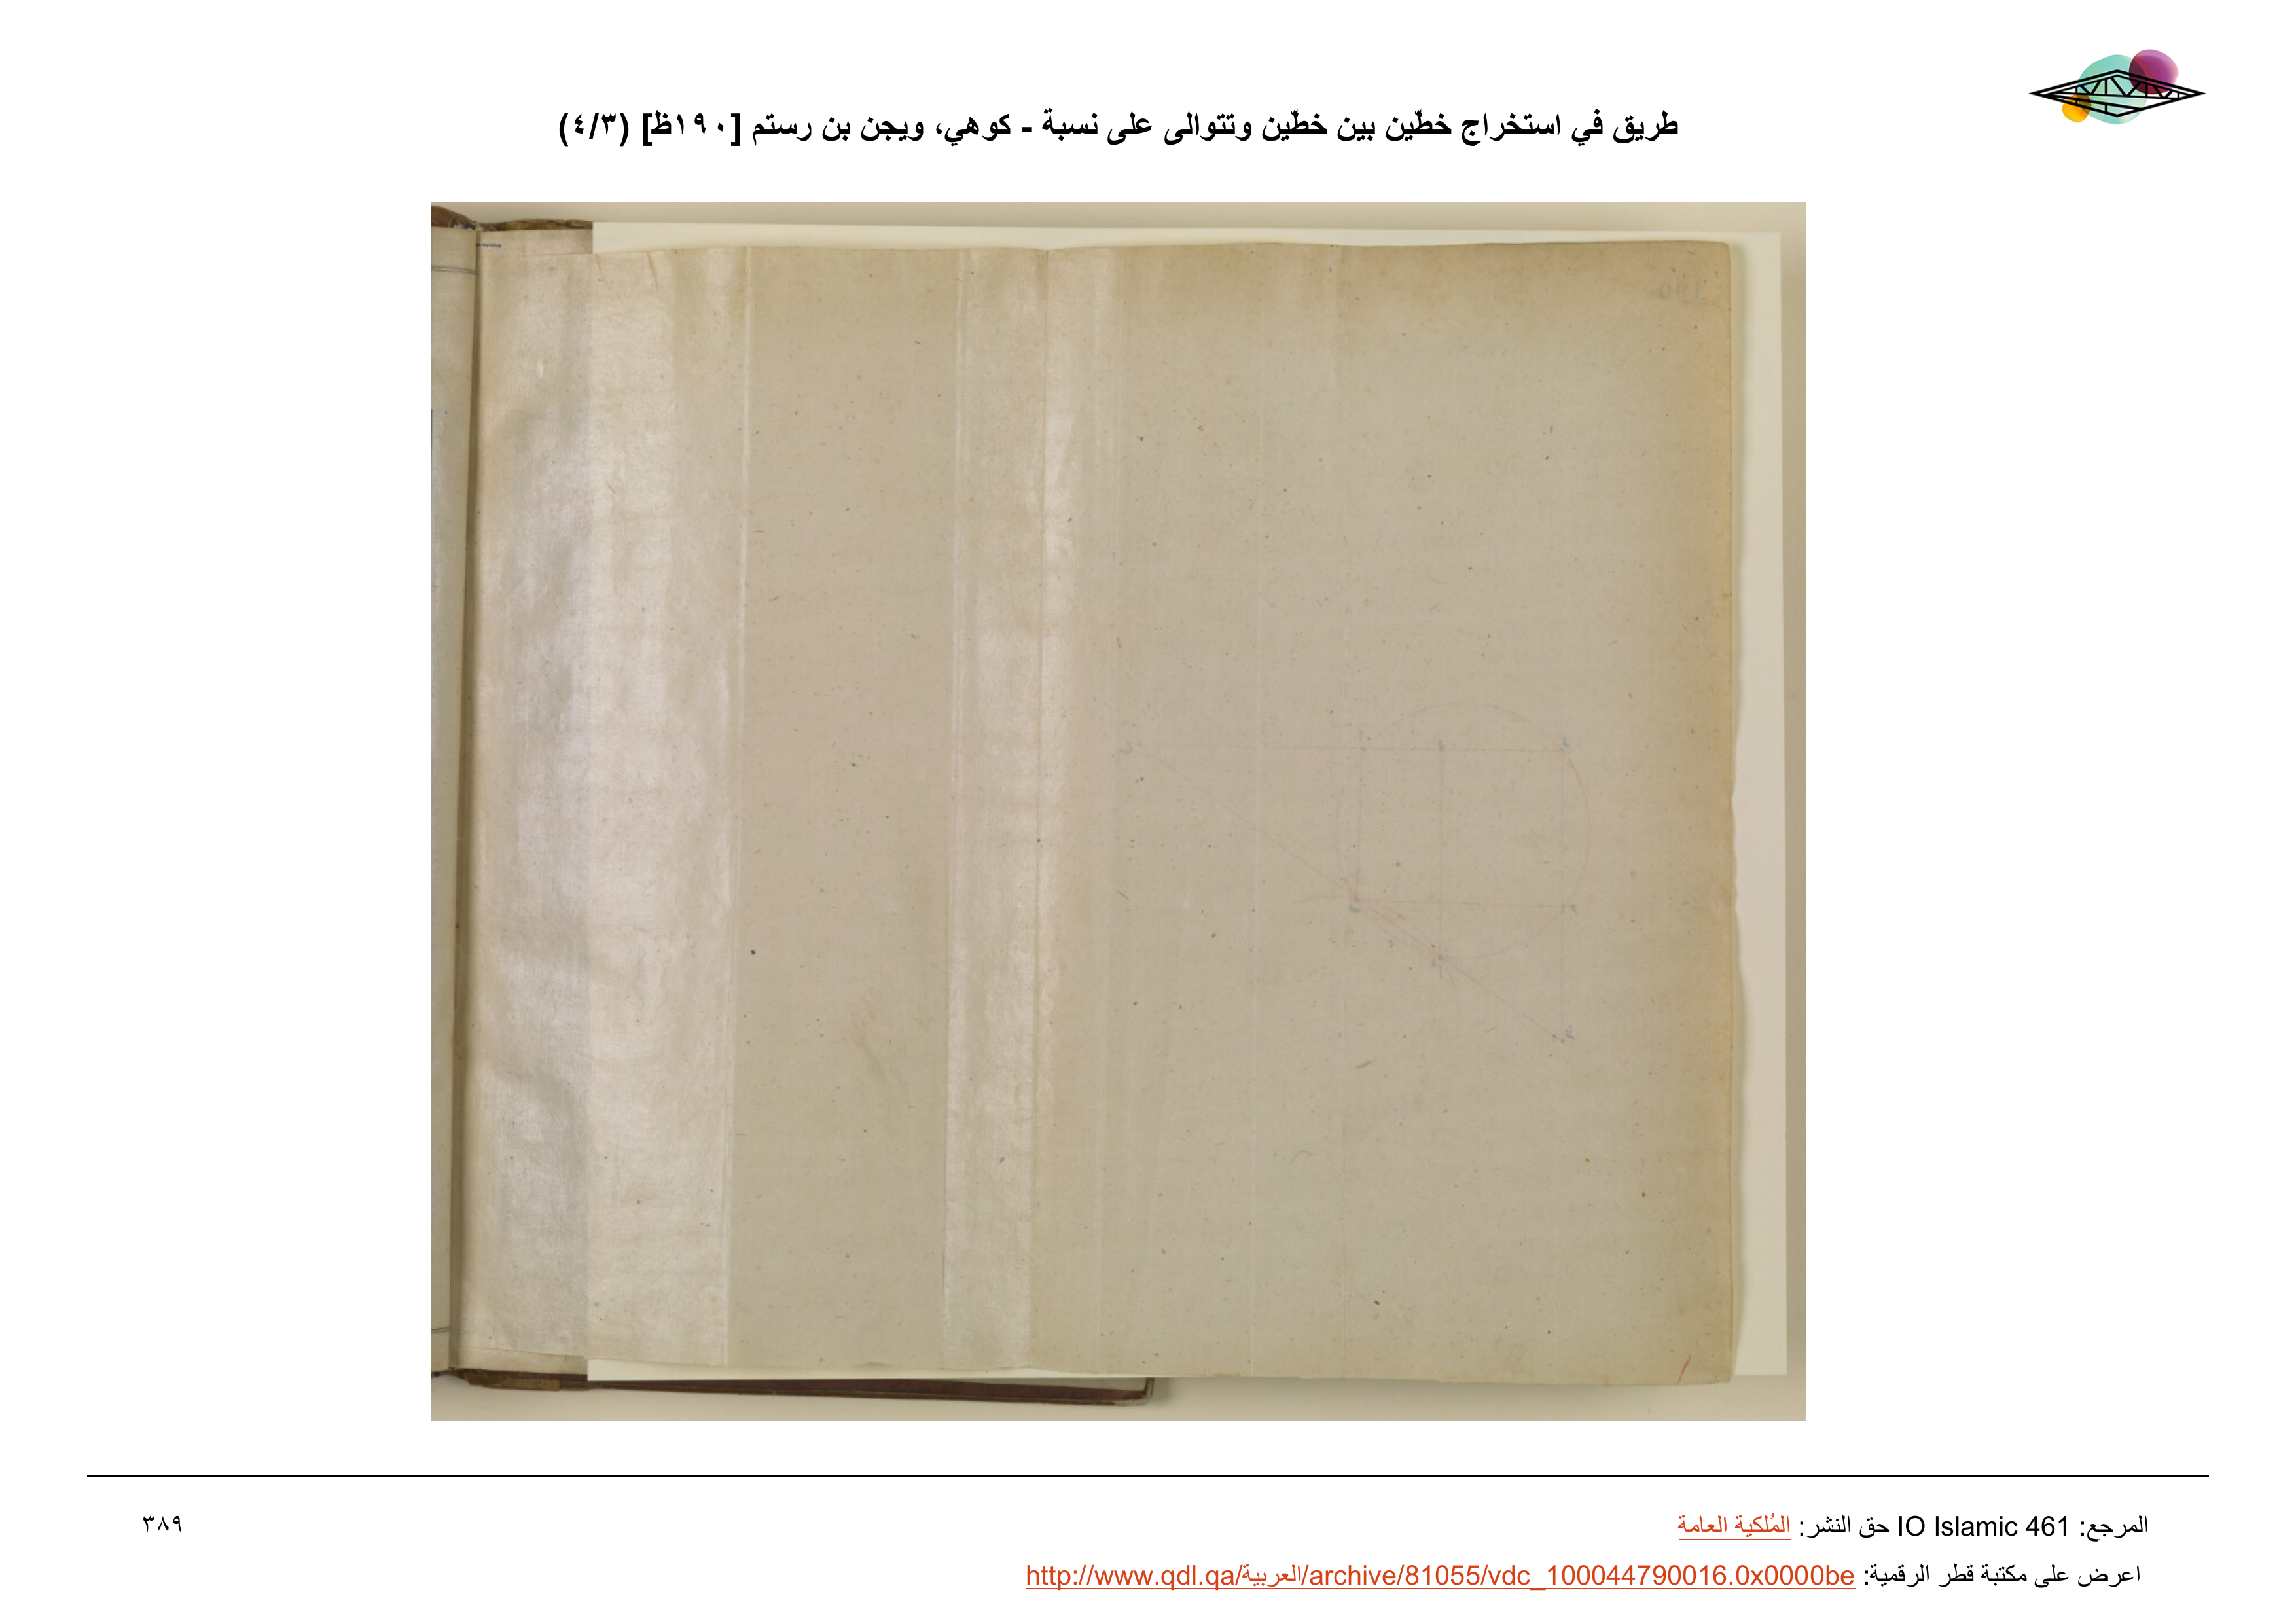 طريق في استخراج خطّين بين خطّين وتتوالى على نسبة - كوهي، ويجن بن رستم [١٩٠ظ] (٤/٣)
المرجع: IO Islamic 461 حق النشر: المُلكية العامة
٣٨٩
اعرض على مكتبة قطر الرقمية: http://www.qdl.qa/العربية/archive/81055/vdc_100044790016.0x0000be